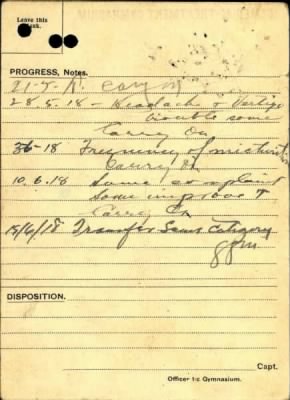 Leave this
blank.
PROGRESS, Notes.
21-5-
28.5.18 - Headach & Vertigo
trouble some
Carry On
3-6-18 Frequency of micturition
Carry On
10.6.18 Same complaint
Some improve t
Carry On
15/6/18 Transfer Same Category
DISPOSITION.
Capt.
Officer i/c Gymnasium.